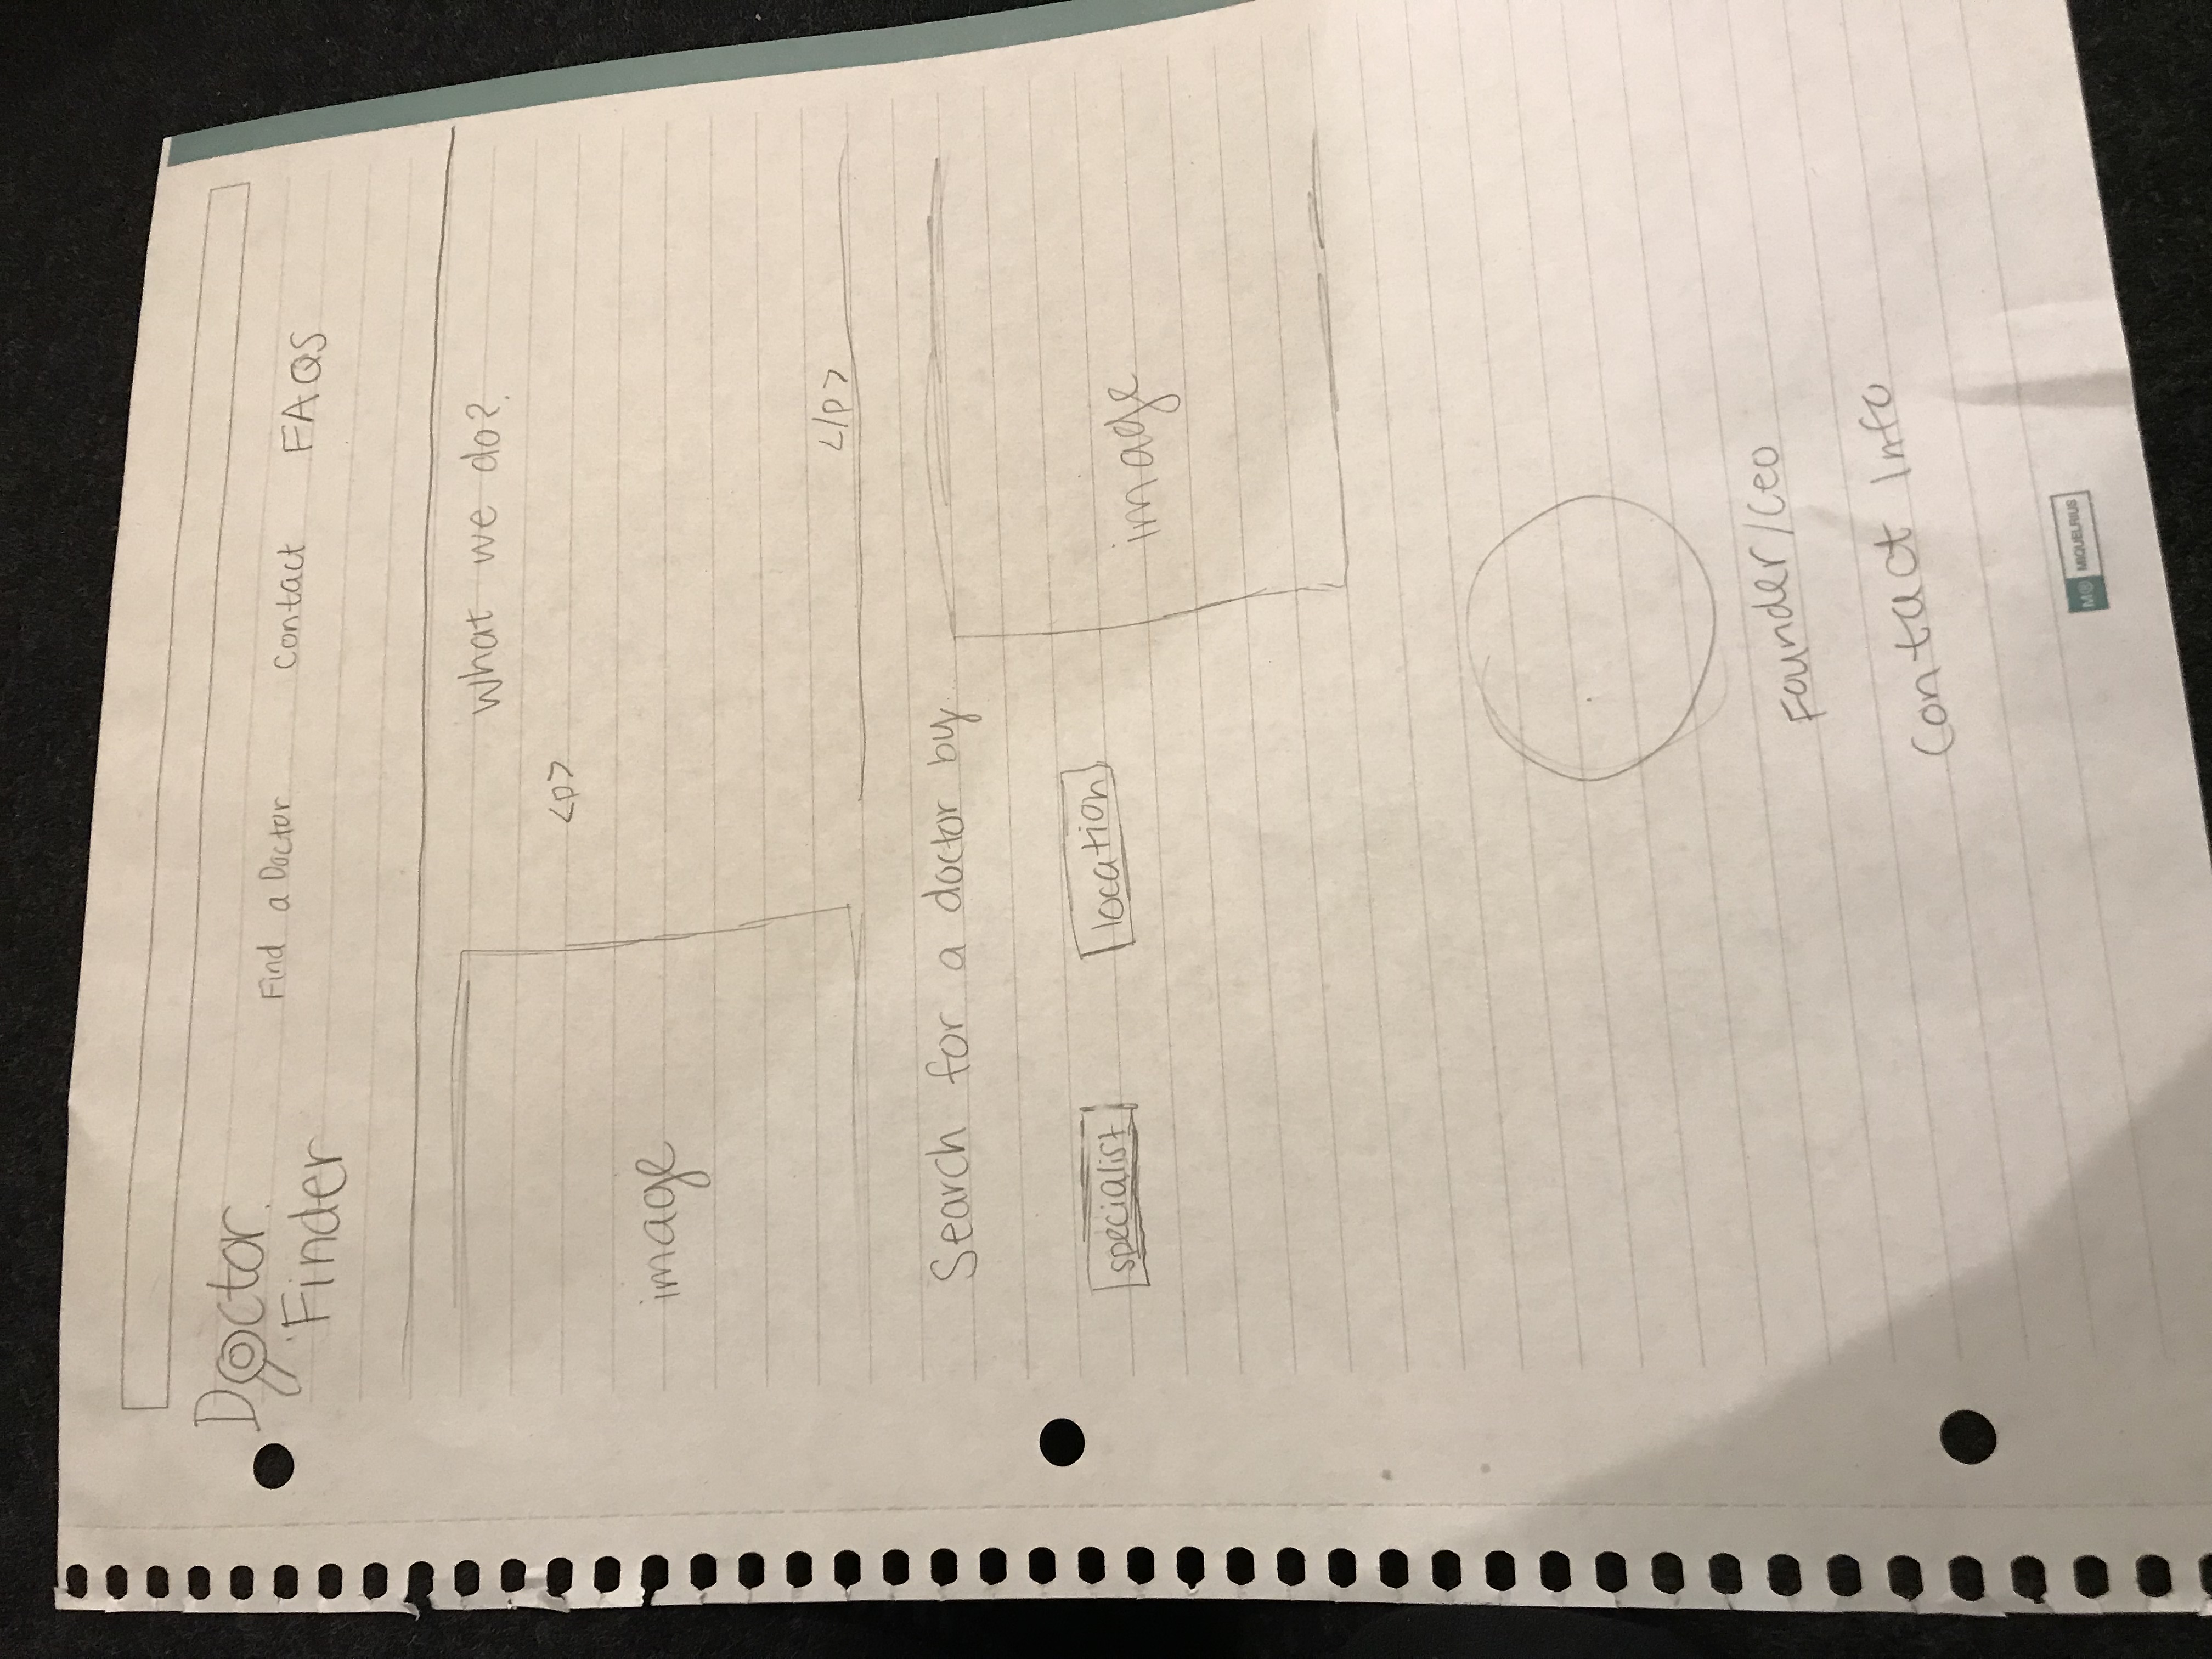 Doctor
Finder
Find a Doctor
Contact
FAQS
What we do?
<p>
image
</p>
Search for a doctor by
specialist
location
image
Founder/Ceo
Contact Info
M® MIQUELRIUS